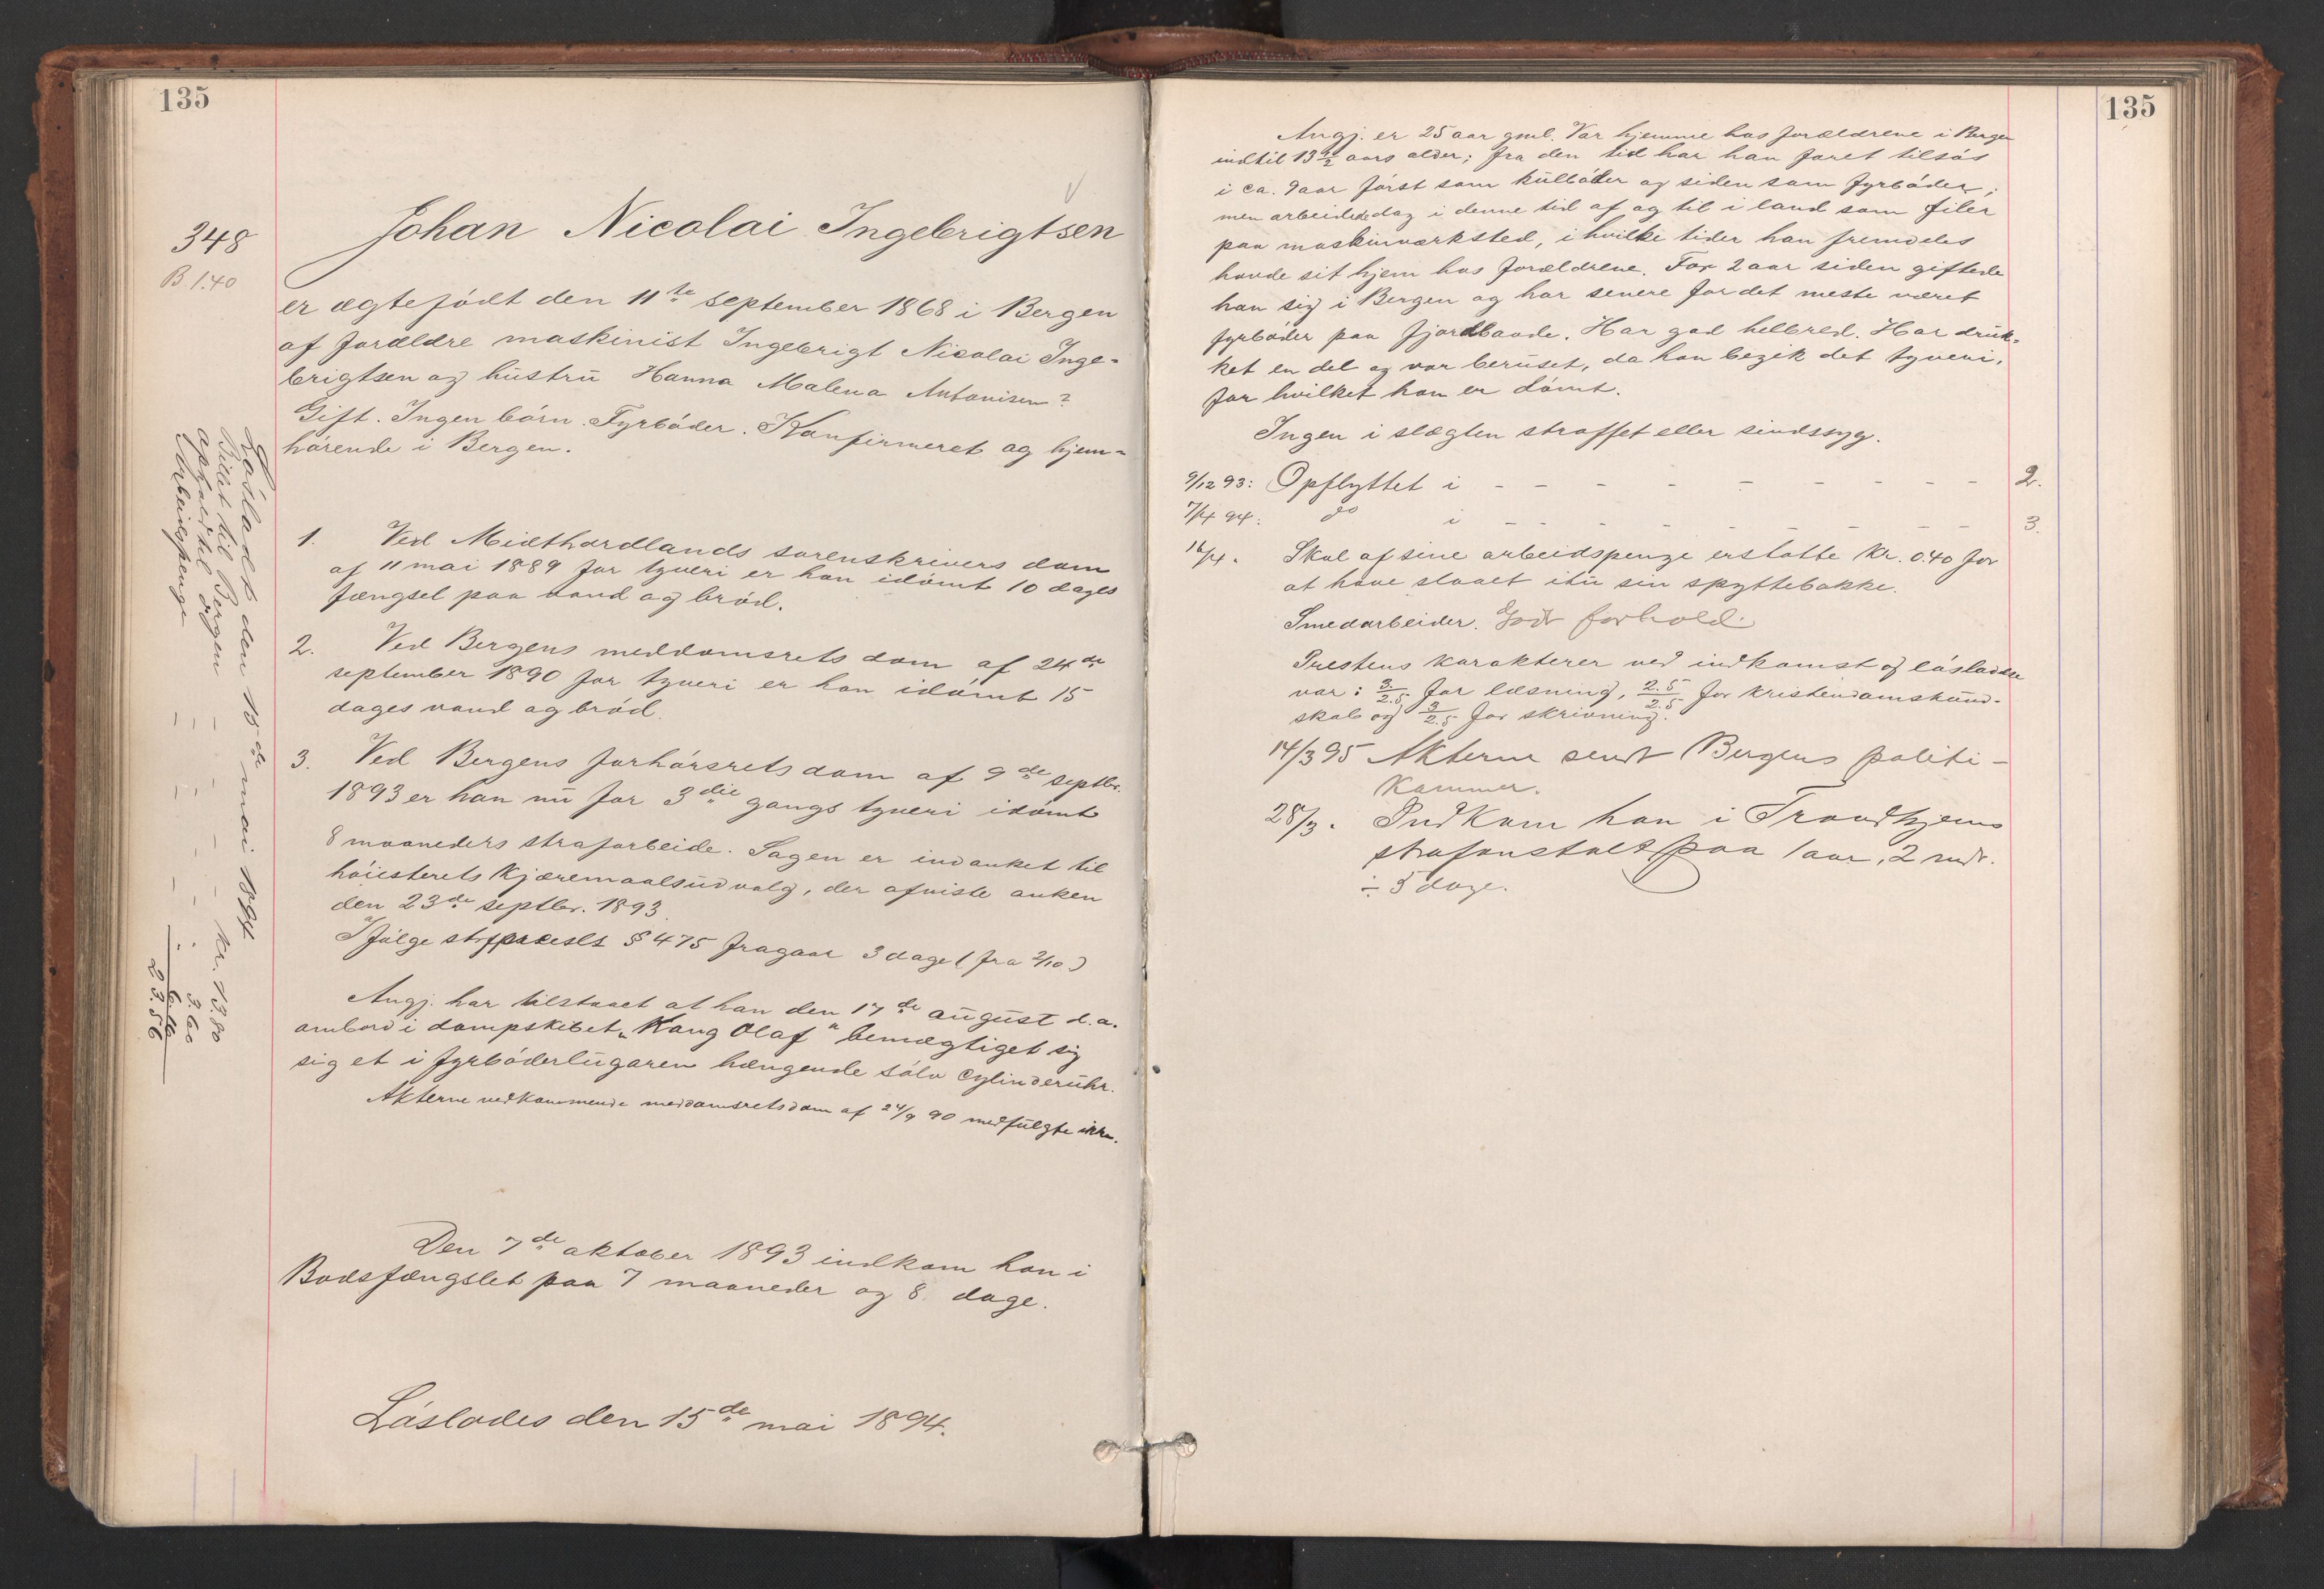 135
348
B. 1.40
Johan Nicolai Ingebrigtsen
er ægtefödt den 11te september 1868 i Bergen
af forældre maskinist Ingebrigt Nicolai Inge-
brigtsen og hustru Hanna Malena Antonisen?
Gift. Ingen börn. Fyrböder. Konfirmeret og hjem-
hörende i Bergen.
1. Ved Midthordlands sorenskrivers dom
af 11 mai 1889 for tyveri er han idömt 10 dages
fængsel paa vand og bröd.
2. Ved Bergens meddomsrets dom af 24de
september 1890 for tyveri er han idömt 15
dages vand og bröd.
3. Ved Bergens forhörsrets dom af 9de septbr.
1893 er han nu for 3die gangs tyveri idömt
8 maaneders strafarbeide. Sagen er indanket til
höiesterets kjæremaalsudvalg, der afviste anken
den 23de septbr. 1893.
Ifölge § 475 fragaar 3 dage (fra 2/10)
Angj. har tilstaaet at han den 17de august d.a.
ombord i dampskibet „Kong Olaf" bemægtiget sig
sig et i fyrböderlugaren hængende sölv cylinderuhr.
Akterne vedkommende meddomsretsdom af 24/9 90 medfulgte ikke.
Den 7de oktober 1893 indkom han i
Bodsfængslet paa 7 maaneder og 8 dage.
Löslades den 15de mai 1894.
Lösladt den 15de mai 1894
Billet til Bergen - - - Kr. 13.80
ophold til do - - - - 3.60
Arbeidspenge - - - - 6.16
23.56
135
Angj. er 25 aar gml. Var hjemme hos forældrene i Bergen
indtil 13 1/2 aars alder; fra den tid har han faret tilsös
i ca. 9 aar först som kulböder og siden som fyrböder;
men arbeidede dog i denne tid af og til i land som filer
paa maskinværksted, i hvilke tider han fremdeles
havde sit hjem hos forældrene. For 2 aar siden giftede
han sig i Bergen og har senere for det meste været
fyrböder paa fjordbaade. Har god helbred. Har druk-
ket en del og var beruset, da han begik det tyveri,
for hvilket han er dömt.
Ingen i slægten straffet eller sindssyg.
9/12 93: Opflyttet i - - - - - - - - 2.
7/4 94: do i - - - - - - - - 3.
16/4. Skal af sine arbeidspenge erstatte Kr. 0.40 for
at have slaaet itu sin spyttebakke.
Smedarbeider. Godt forhold.
Prestens karakterer ved indkomst og lösladelse
var: 3/2.5 for læsning, 2.5/2.5 for kristendomskund-
skab og 3/2.5 for skrivning.
14/3 95 Akterne sendt Bergens politi-
kammer.
28/3. Indkom han i Trondhjems
strafanstalt paa 1 aar, 2 mdr.
÷ 5 dage.